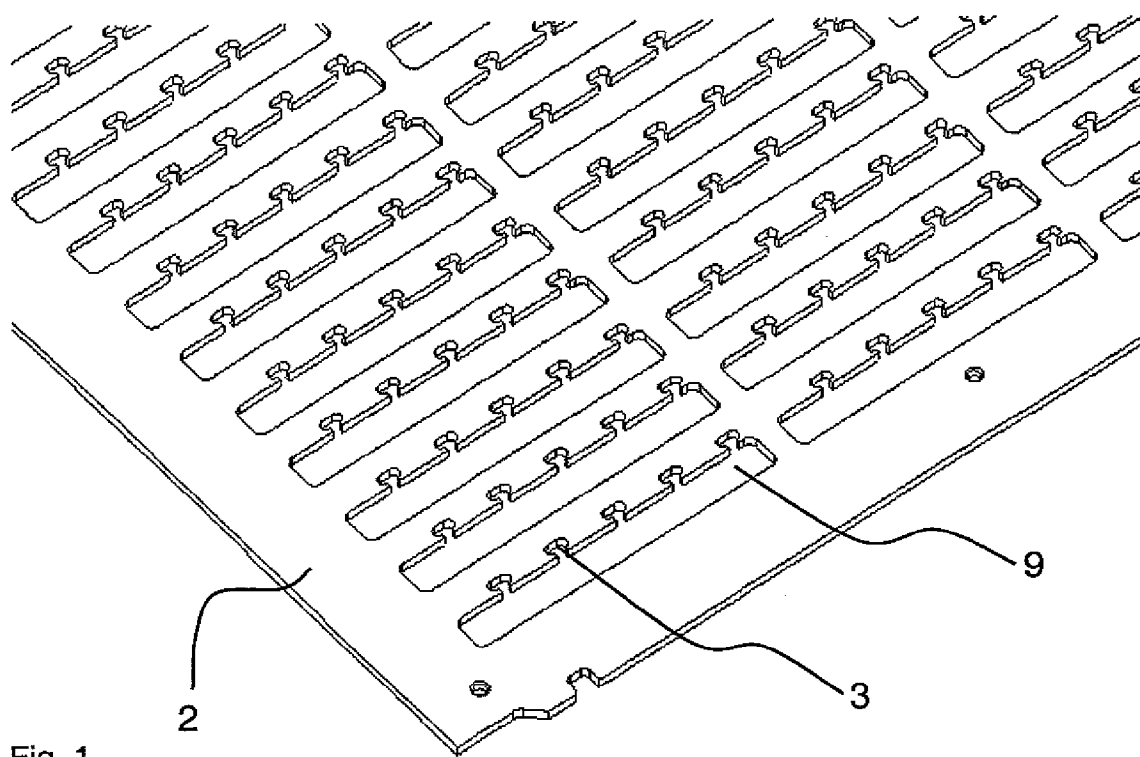 9
3
2
Fig. 1